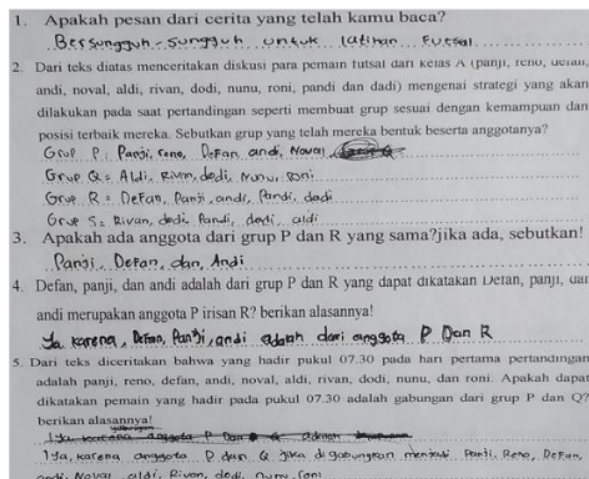 1. Apakah pesan dari cerita yang telah kamu baca?
Bersungguh-sungguh untuk latihan Futsal
2. Dari teks diatas menceritakan diskusi para pemain futsal dari kelas A (panji, reno, defan,
andi, noval, aldi, rivan, dodi, nunu, roni, pandi dan dadi) mengenai strategi yang akan
dilakukan pada saat pertandingan seperti membuat grup sesuai dengan kemampuan dan
posisi terbaik mereka. Sebutkan grup yang telah mereka bentuk beserta anggotanya?
Grup P : Panji, reno, Defan, andi, Noval
Grup Q = Aldi, Rivan, dodi, Nunu, Roni
Grup R = Defan, Panji, andi, Pandi, dadi
Grup S = Rivan, dodi, Pandi, dadi, aldi
3. Apakah ada anggota dari grup P dan R yang sama?jika ada, sebutkan!
Panji, Defan, dan, Andi
4. Defan, panji, dan andi adalah dari grup P dan R yang dapat dikatakan Defan, panji, dan
andi merupakan anggota P irisan R? berikan alasannya!
Ya karena, Defan, Panji, andi adalah dari anggota P Dan R
5. Dari teks diceritakan bahwa yang hadir pukul 07.30 pada hari pertama pertandingan
adalah panji, reno, defan, andi, noval, aldi, rivan, dodi, nunu, dan roni. Apakah dapat
dikatakan pemain yang hadir pada pukul 07.30 adalah gabungan dari grup P dan Q?
berikan alasannya!
Iya karena anggota P Dan Q adalah
Iya, karena anggota P dan Q jika digabungkan menjadi Panji, Reno, Defan,
andi, Noval, aldi, Rivan, dodi, nunu, roni